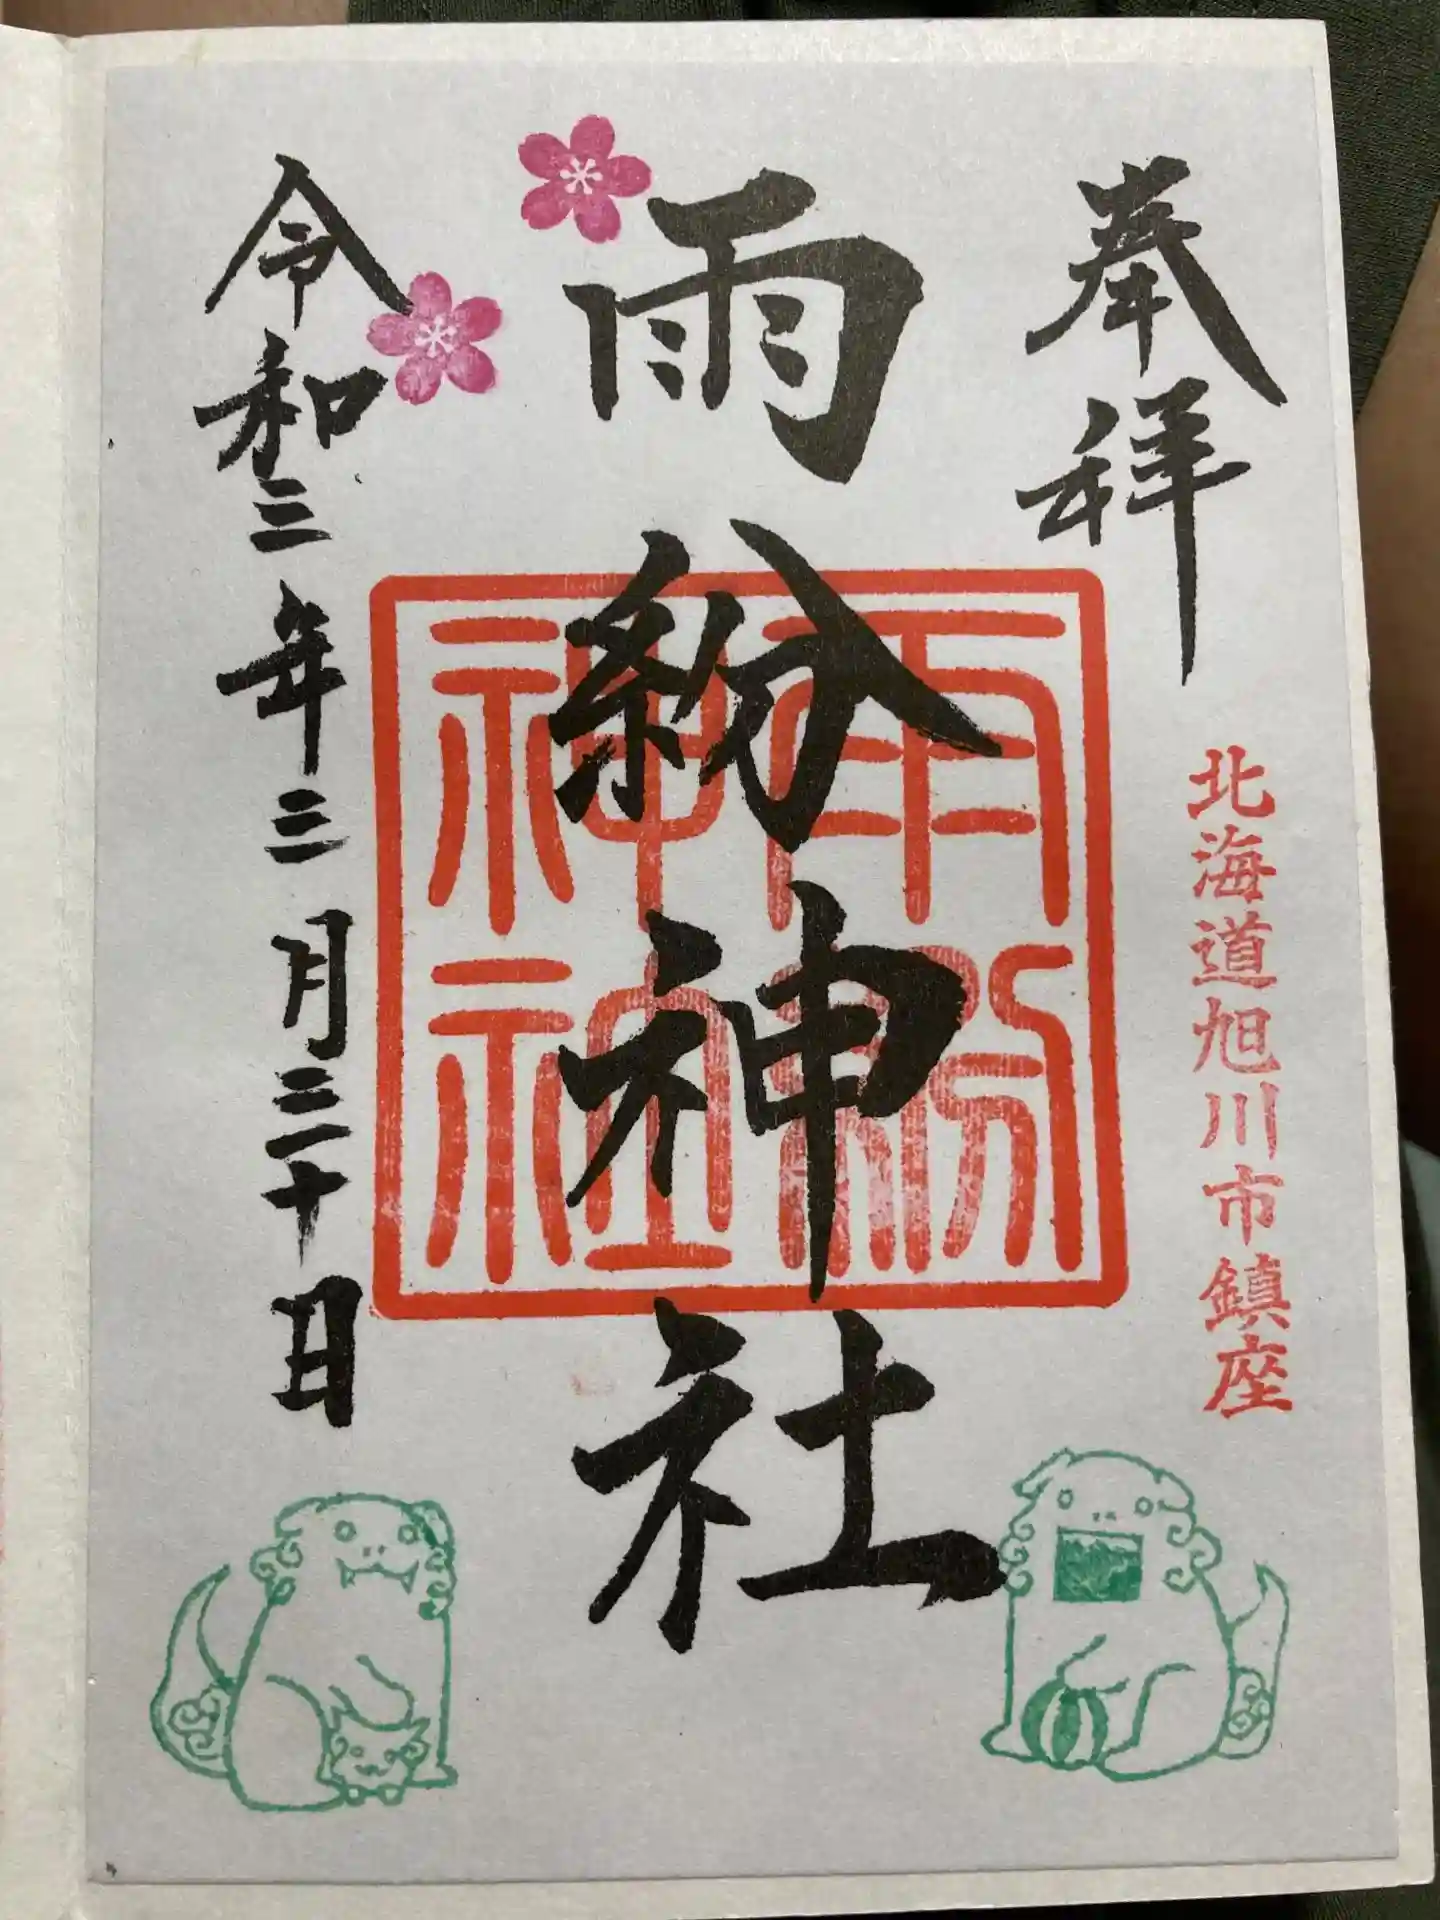 奉拝
北海道旭川市鎮座
雨紛神社
雨紛
神社
令和三年三月三十日